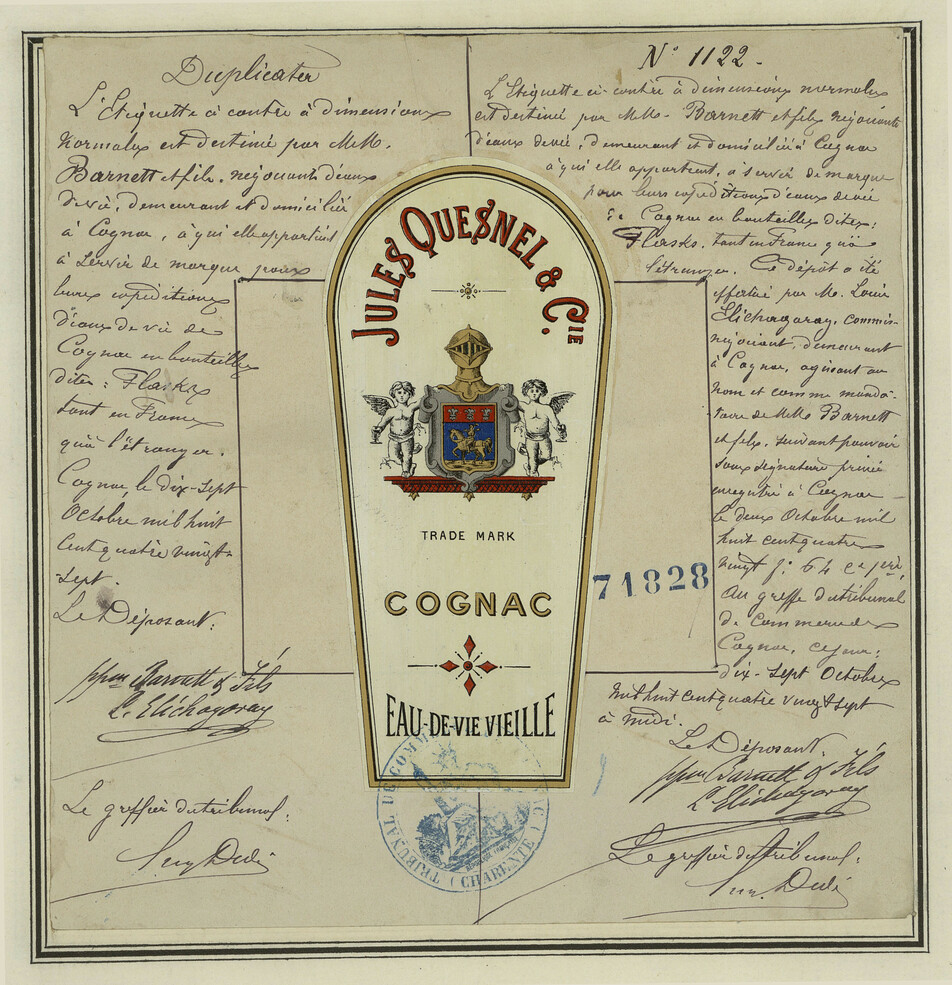 Duplicater
L'Etiquette ci contre à dimensions
Normales est destiné par MM.
Barnett et fils, négociants d'eaux
de vie, demeurant et domicilié
à Cognac, à qui elle appartient
à servir de marque pour
leurs expéditions
d'eaux de vie de
Cognac en bouteilles
dites: Flasks
tant en France
qu'à l'étranger.
Cognac, le dix-sept
Octobre mil huit
cent quatre vingt-
sept.
Le Déposant:
ppon Barnett & Fils
L. Elichagaray
Le greffier du tribunal:
N° 1122-
L'Etiquette ci-contre à dimensions normales
est destiné par MM. Barnett et fils négociants
d'eaux de vie, demeurant et domicilié à Cognac
à qui elle appartient, à servir de marque
pour leurs expéditions d'eaux de vie
de Cognac en bouteilles dites:
Flasks, tant en France qu'à
l'étranger. Ce dépôt a été
effectué par M. Louis
Elichagaray, commis-
négociant, demeurant
à Cognac, agissant au
nom et comme manda-
taire de MM. Barnett
et fils, suivant pouvoir
sous signature privée
enregistré à Cognac
le deux Octobre mil
huit cent quatre
vingt f: 64
Au greffe du tribunal
de Commerce de
Cognac, ce jour:
dix-sept Octobre
mil huit cent quatre vingt sept
à midi.
Le Déposant.
ppon Barnett & Fils
L. Elichagaray
Le greffier du tribunal:
JULES QUESNEL & CIE.
TRADE MARK
COGNAC
EAU-DE-VIE VIEILLE
71828
TRIBUNAL DE COMM
(CHARENTE)